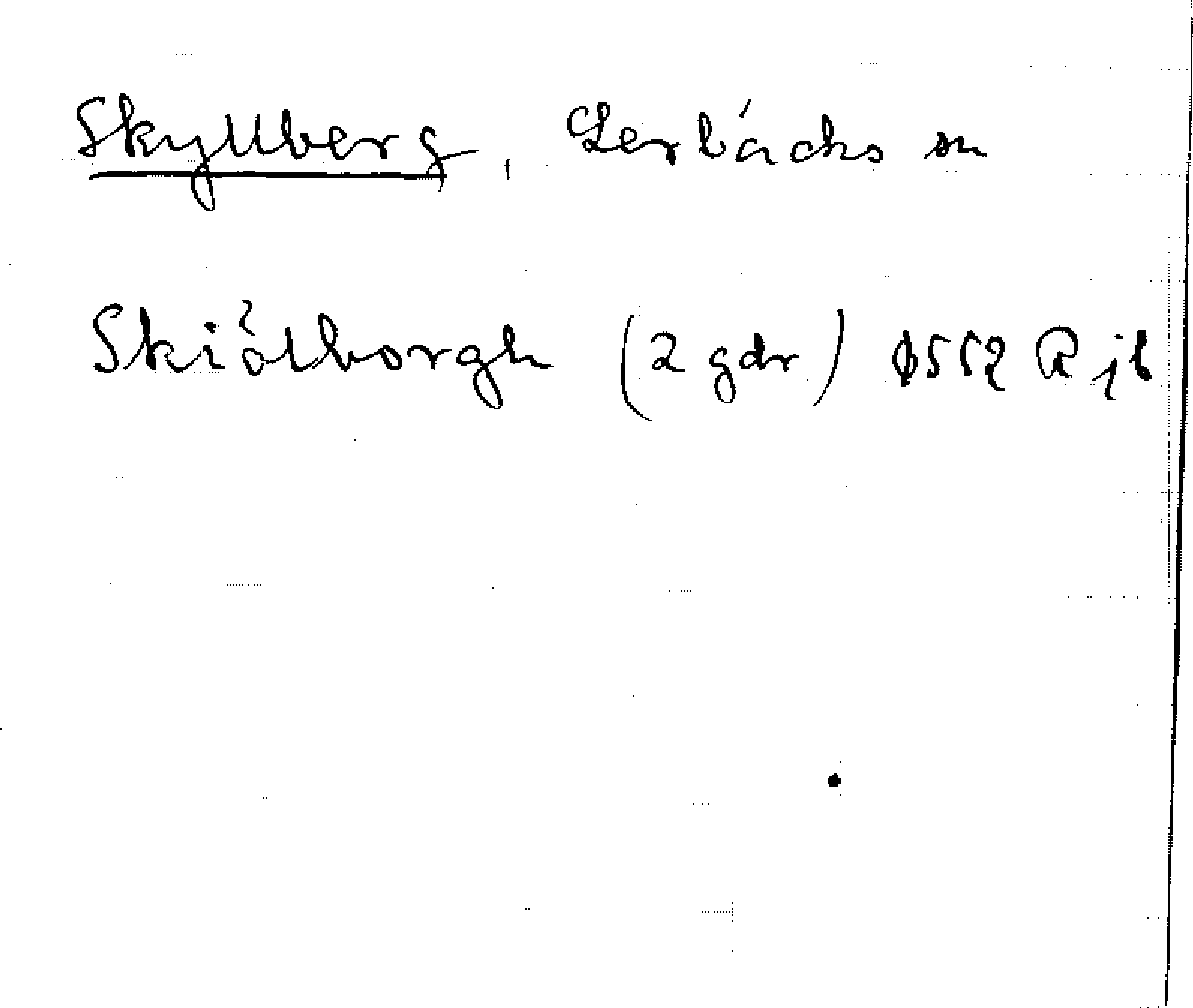 Skyllberg, Lerbäcks sn
Skiålborgh (2 gdr) 1552 R jb